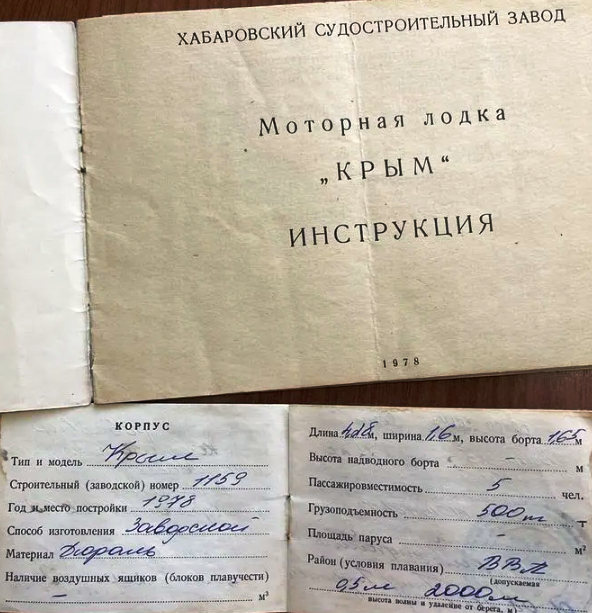 ХАБАРОВСКИЙ СУДОСТРОИТЕЛЬНЫЙ ЗАВОД
Моторная лодка
„КРЫМ“
ИНСТРУКЦИЯ
1978
КОРПУС
Тип и модель Крым
Строительный (заводской) номер 1159
Год и место постройки 1978
Способ изготовления Заводской
Материал Дюраль
Наличие воздушных ящиков (блоков плавучести)
– м³
Длина м, ширина 1,6 м, высота борта 1,65 м
Высота надводного борта - м
Пассажировместимость 5 чел.
Грузоподъемность 500 т
Площадь паруса - м²
Район (условия плавания) ВВП
(допускаемая
0,5 м 2000 м
высота волны и удаление от берега, м)